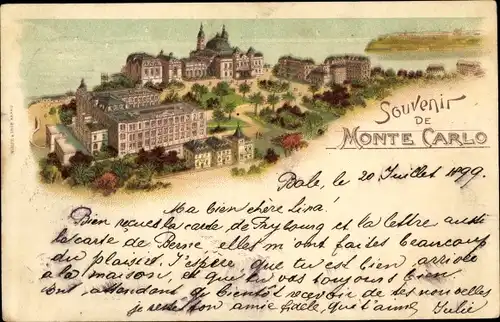 Souvenir
DE
MONTE CARLO
Bale, le 20 Juillet 1899.
Ma bien chère Lina!
Bien reçues la carte de Frybourg et la lettre aussi
la carte de Berne elles m'ont faites beaucoup
du plaisir. J'espère que tu est bien arrivée
à la maison, et que tu vas toujours bien.
en attendant de bientôt recevoir de tes nouvelles
je reste ton amie fidèle, qui t'aime Julie